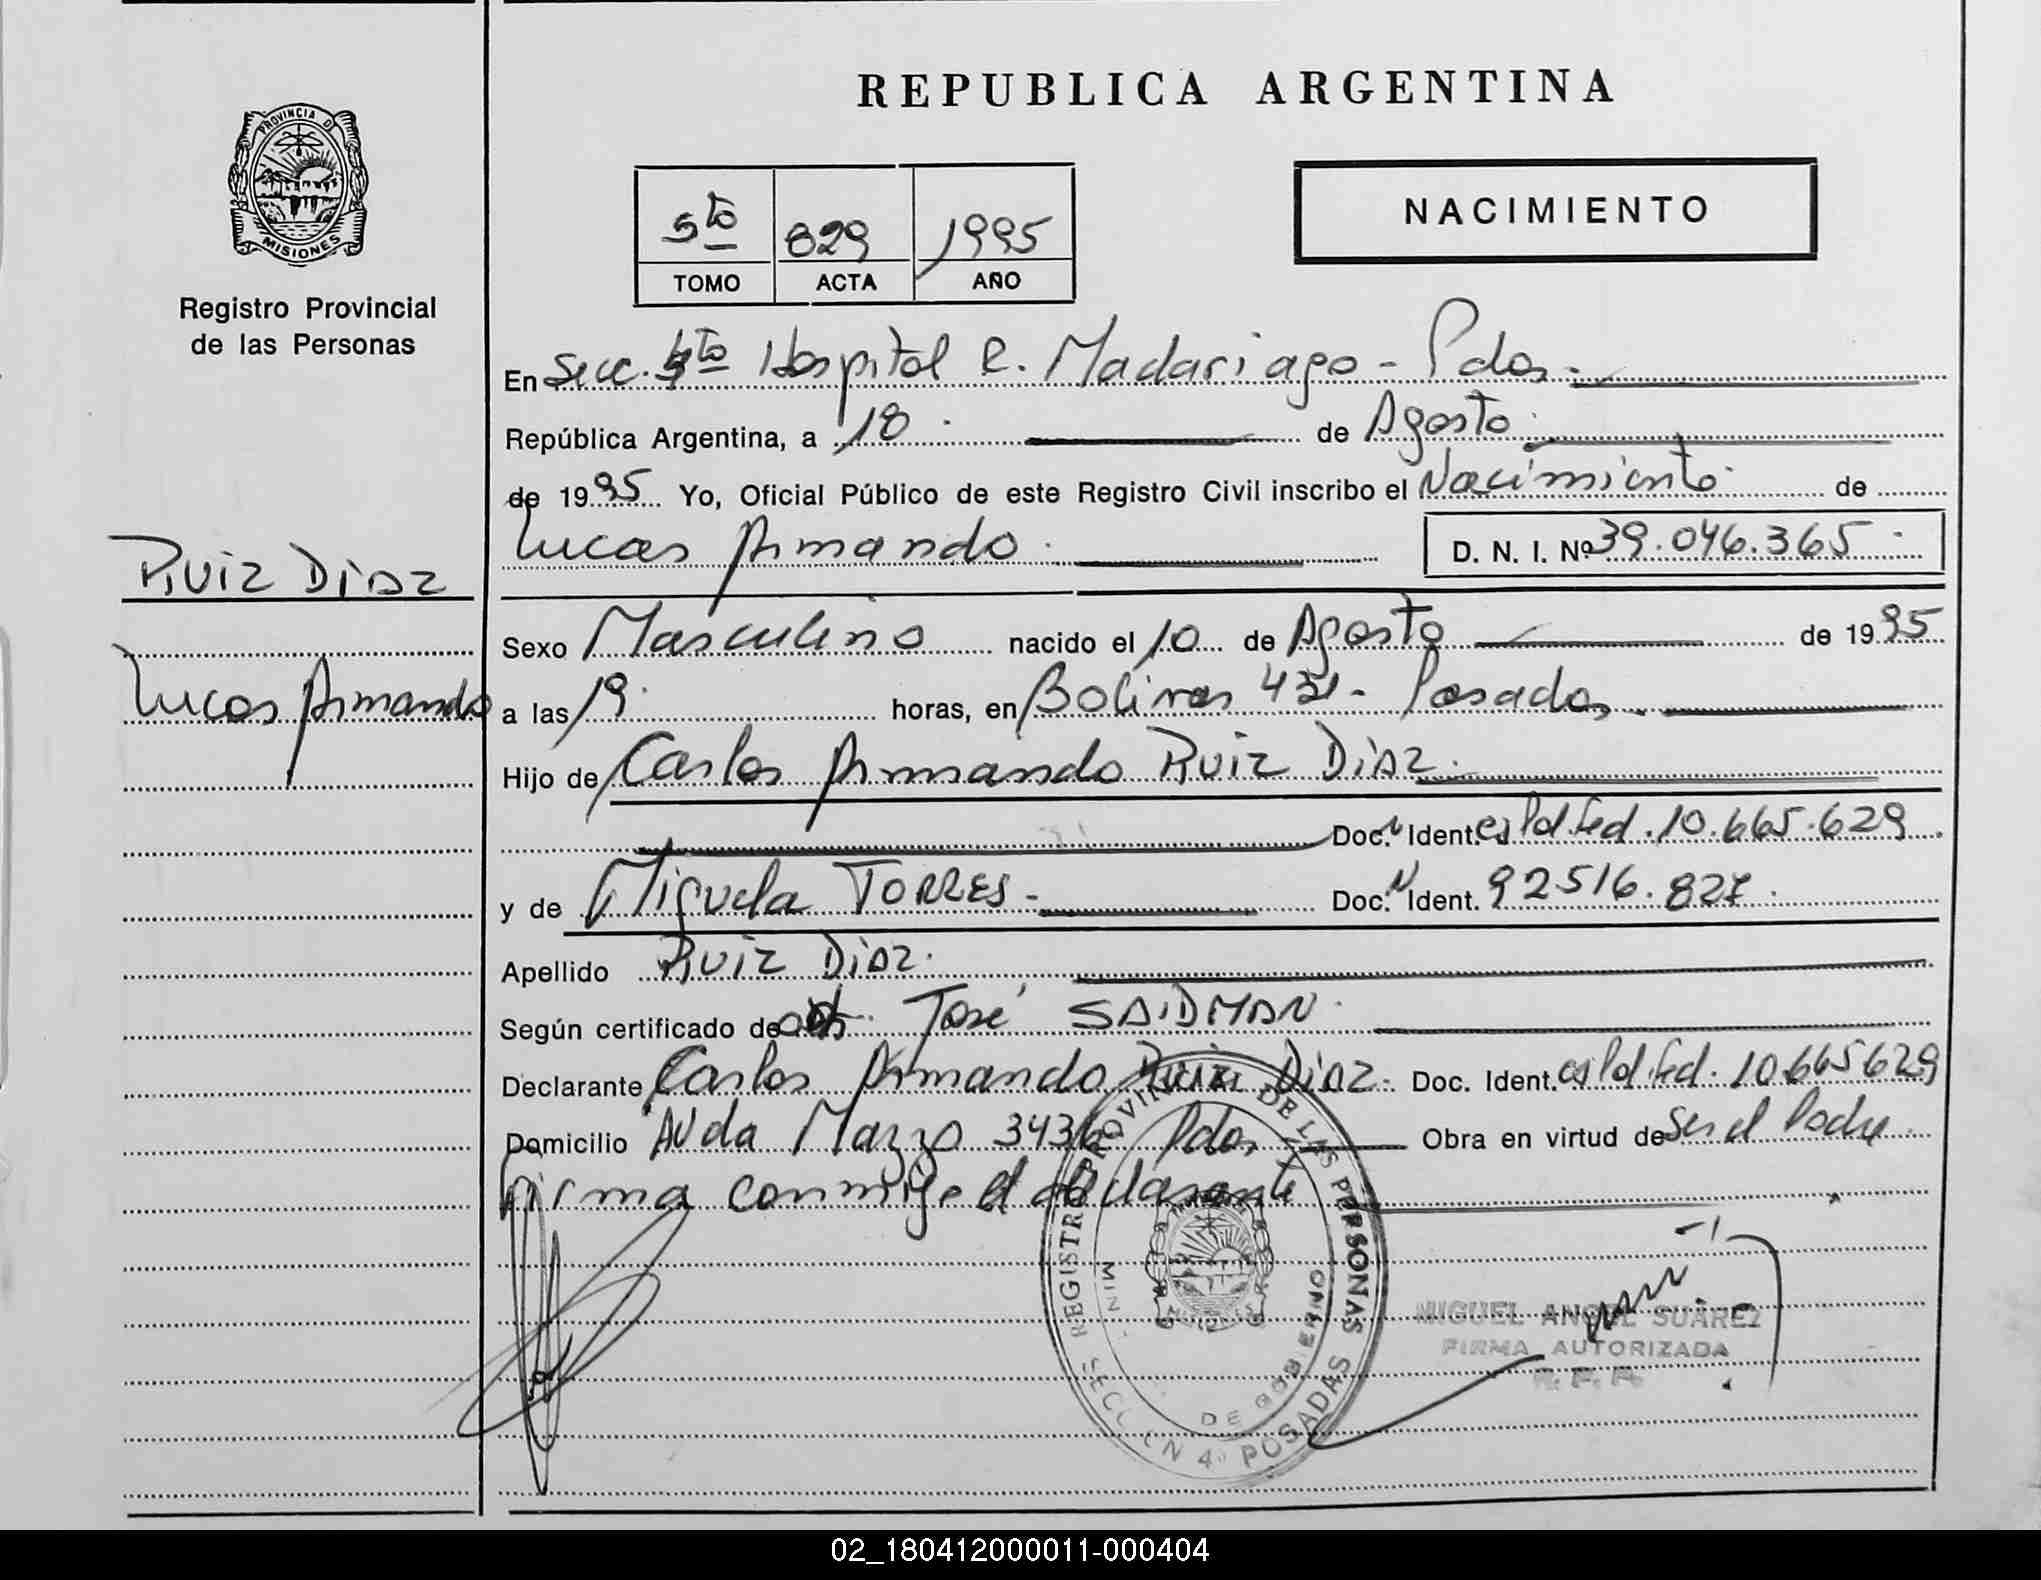 REPUBLICA ARGENTINA
PROVINCIA D
MISIONES
Registro Provincial
de las Personas
5to 829 1995
TOMO ACTA AÑO
NACIMIENTO
En Secc. 4to Hospital R. Madariaga - Pdas.
República Argentina, a 18 de Agosto
de 1995 Yo, Oficial Público de este Registro Civil inscribo el Nacimiento de
Lucas Armando. D. N. I. Nº 39.046.365
Ruiz Diaz
Lucas Armando
Sexo Masculino nacido el 10 de Agosto de 1995
a las 19 horas, en Bolivar 431 - Posadas.
Hijo de Carlos Armando Ruiz Diaz.
Doc. N Ident. es Pol. Fed. 10.665.629
y de Miguela TORRES - Doc. N Ident. 92516.827
Apellido Ruiz Diaz.
Según certificado de José SAIDMAN
Declarante Carlos Armando Ruiz Diaz. Doc. Ident. es Pol. Fed. 10.665629
Domicilio Avda Marzo 3436 Pdas Obra en virtud de Ser el Padre
Firma conmigo el declarante
REGISTRO PROVINCIAL DE LAS PERSONAS
MIN. DE GOBIERNO
SECCION 4ª POSADAS
MIGUEL ANGEL SUÁREZ
FIRMA AUTORIZADA
R. P. P.
02_180412000011-000404